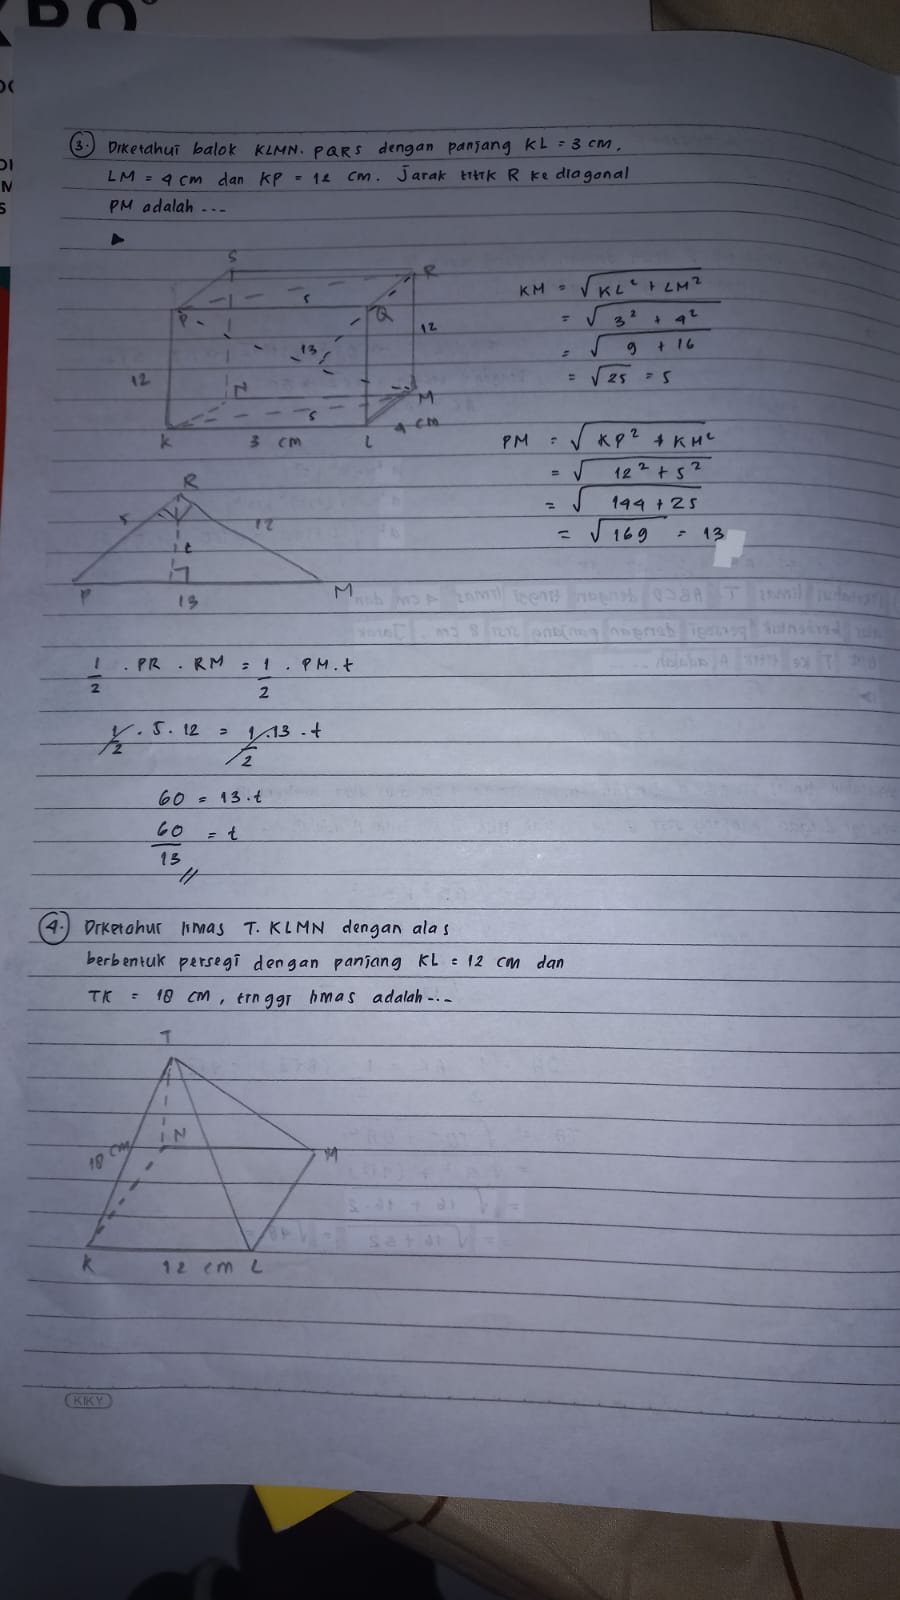 3. Diketahui balok KLMN. PQRS dengan panjang KL = 3 cm,
LM = 4 cm dan KP = 12 cm. Jarak titik R ke diagonal
PM adalah ...
S
R
P
5
Q
12
13
12
N
5
M
4 cm
K
3 cm
L
KM = √KL² + LM²
= √3² + 4²
= √9 + 16
= √25 = 5
PM = √KP² + KM²
= √12² + 5²
= √144 + 25
= √169 = 13
R
5
12
t
P
13
M
1/2 . PR . RM = 1/2 . PM . t
1/2 . 5 . 12 = 1/2 . 13 . t
60 = 13 . t
60/13 = t
4. Diketahui limas T. KLMN dengan alas
berbentuk persegi dengan panjang KL = 12 cm dan
TK = 18 cm, tinggi limas adalah ...
T
N
18 cm
M
K
12 cm
L
KIKY